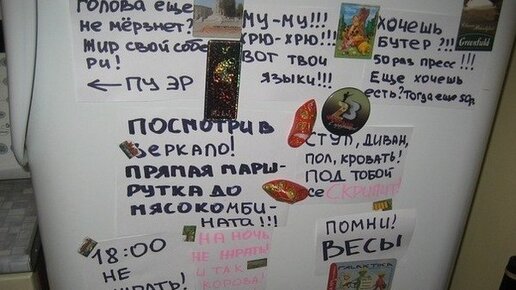 ГОЛОВА ЕЩЕ
НЕ МЁРЗНЕТ?
ЖИР СВОЙ СОБЕ
РИ!
← ПУ ЭР
МУ-МУ!!!
ХРЮ-ХРЮ!!!
ВОТ ТВОИ
ЯЗЫКИ!!!
ХОЧЕШЬ
БУТЕР?!!
50 РАЗ ПРЕСС!!!
ЕЩЕ ХОЧЕШЬ
ЕСТЬ? ТОГДА ЕЩЕ 50р.
Greenfield
ПОСМОТРИ В
ЗЕРКАЛО!
ПРЯМАЯ МАРШ-
РУТКА ДО
МЯСОКОМБИ-
НАТА!!!
23
СТУЛ, ДИВАН,
ПОЛ, КРОВАТЬ!
ПОД ТОБОЙ
ВСЕ СКРИПИТ!
18:00
НЕ
ЖРАТЬ!
НА НОЧЬ
НЕ ЖРАТЬ!
И ТАК
КОРОВА!
ПОМНИ!
ВЕСЫ
GALAKTIKA